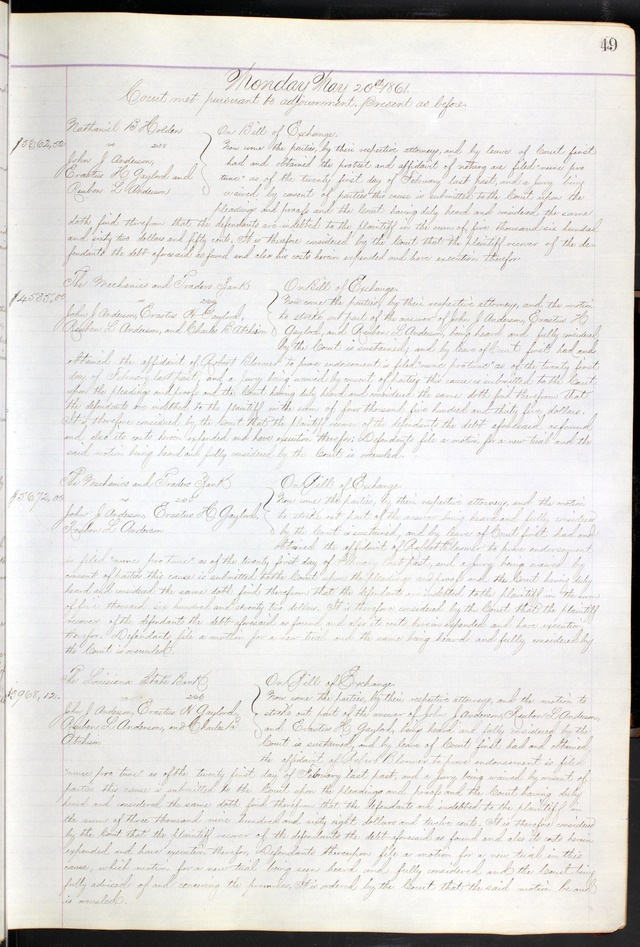 49
Monday May 20th 1861.
Court met pursuant to adjournment. Present as before.
Nathaniel B Holden
vs 203
John J Anderson,
Erastus H Gaylord and
Reuben L Anderson
On Bill of Exchange.
Now come the parties, by their respective attorneys, and by leave of Court first
had and obtained the protest and affidavit of notary are filed "nunc pro
tunc" as of the twenty first day of February last past, and a jury being
waived by consent of parties this cause is submitted to the Court upon the
pleadings and proofs and the Court having duly heard and considered the same
doth find therefrom that the defendants are indebted to the plaintiff in the sum of five thousand six hundred
and sixty two dollars and fifty cents. It is therefore considered by the Court that the plaintiff recover of the de-
fendants the debt aforesaid as found, and also his costs herein expended and have execution therefor.
The Mechanics and Traders Bank
vs
John J Anderson, Erastus H Gaylord,
Reuben L Anderson, and Charles P. Atchison
$4535,00
On Bill of Exchange.
Now come the parties, by their respective attorneys, and the motion
to strike out part of the answer of John J Anderson, Erastus H
Gaylord, and Reuben L Anderson, being heard and fully considered
by the Court is sustained, and by leave of Court first had and
obtained the affidavit of Robert to prove endorsement is filed "nunc pro tunc" as of the twenty first
day of February last past, and a jury being waived by consent of parties this cause is submitted to the Court
upon the pleadings and proofs and the Court having duly heard and considered the same doth find therefrom that
the defendants are indebted to the plaintiff in the sum of four thousand five hundred and thirty five dollars.
It is therefore considered by the Court that the plaintiff recover of the defendants the debt aforesaid as found,
and also its costs herein expended and have execution therefor; Defendants file a motion for a new trial and the
said motion being heard and fully considered by the Court is overruled.
The Mechanics and Traders Bank
vs
John J Anderson, Erastus H Gaylord,
Reuben L Anderson
$5672,00
On Bill of Exchange
Now come the parties, by their respective attorneys, and the motion
to strike out part of the answer being heard and fully considered
by the Court is sustained, and by leave of Court first had and
obtained the affidavit of Robert to prove endorsement
is filed "nunc pro tunc" as of the twenty first day of February last past, and a jury being waived by
consent of parties this cause is submitted to the Court upon the pleadings and proofs and the Court having duly
heard and considered the same doth find therefrom that the defendants are indebted to the plaintiff in the sum
of five thousand six hundred and seventy two dollars. It is therefore considered by the Court that the plaintiff
recover of the defendants the debt aforesaid as found and also its costs herein expended and have execution
therefor. Defendants file a motion for a new trial and the same being heard and fully considered by
the Court is overruled.
The Louisiana State Bank
vs 206
John J Anderson, Erastus H Gaylord,
Reuben L Anderson, and Charles P.
Atchison
3968,12.
On Bill of Exchange.
Now come the parties, by their respective attorneys, and the motion to
strike out part of the answer of John J Anderson, Reuben L Anderson,
and Erastus H Gaylord, being heard and fully considered by the
Court is sustained, and by leave of Court first had and obtained,
the affidavit of Robert to prove endorsement is filed
"nunc pro tunc" as of the twenty first day of February last past, and a jury being waived by consent of
parties this cause is submitted to the Court upon the pleadings and proofs and the Court having duly
heard and considered the same doth find therefrom that the defendants are indebted to the plaintiff in
the sum of three thousand nine hundred and sixty eight dollars and twelve cents. It is therefore considered
by the Court that the plaintiff recover of the defendants the debt aforesaid as found and also its costs herein
expended and have execution therefor; Defendants thereupon file a motion for a new trial in this
cause, which motion for a new trial being seen heard and fully considered and the Court being
fully advised of and concerning the premises, It is ordered by the Court that the said motion be and
is overruled.